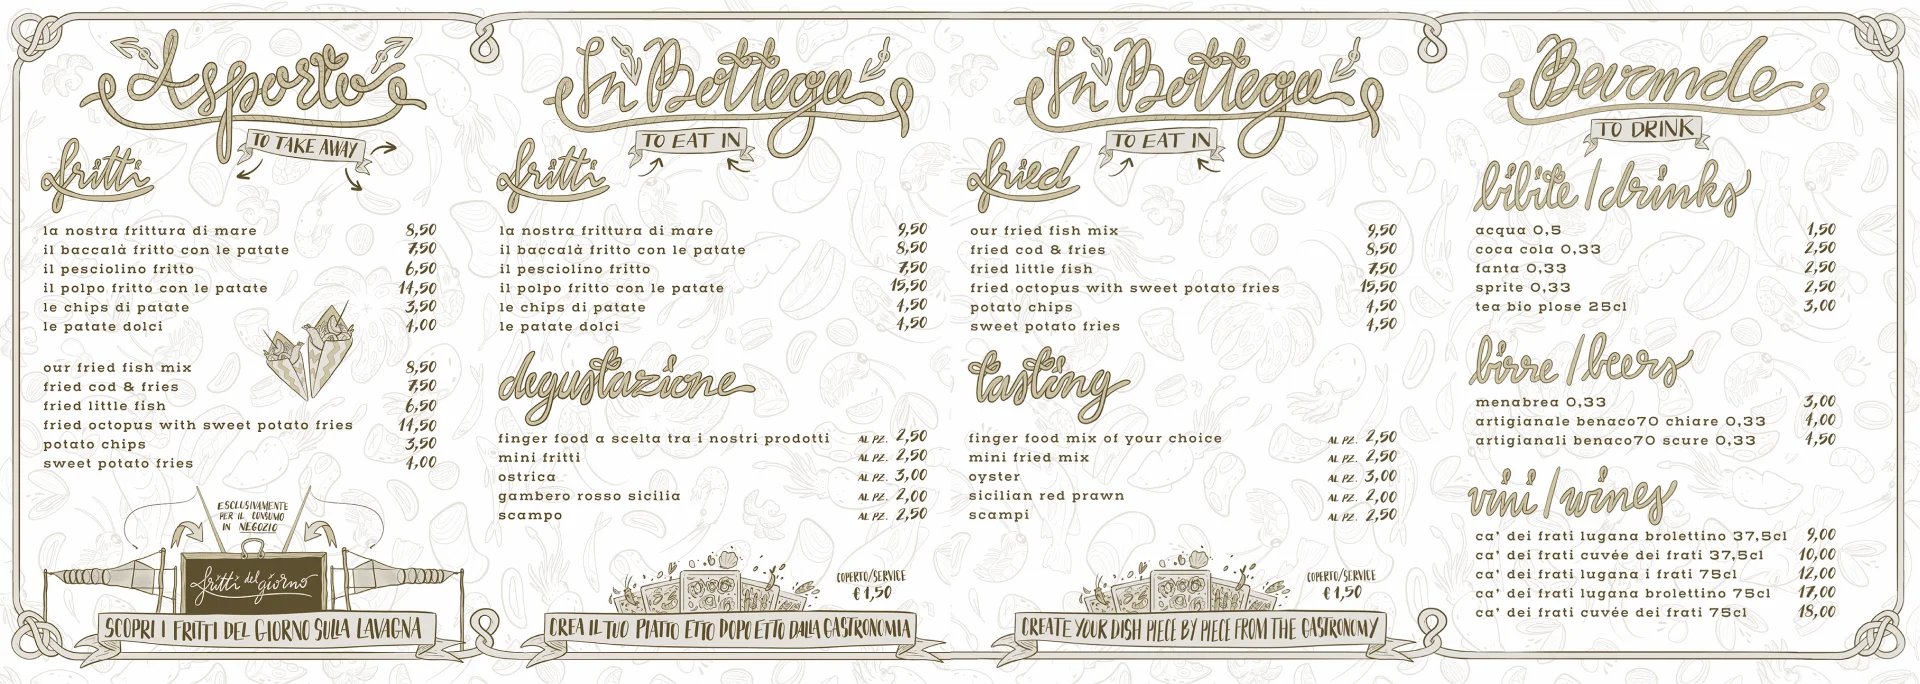 Asporto
TO TAKE AWAY
fritti
la nostra frittura di mare 8,50
il baccalà fritto con le patate 7,50
il pesciolino fritto 6,50
il polpo fritto con le patate 14,50
le chips di patate 3,50
le patate dolci 4,00
our fried fish mix 8,50
fried cod & fries 7,50
fried little fish 6,50
fried octopus with sweet potato fries 14,50
potato chips 3,50
sweet potato fries 4,00
ESCLUSIVAMENTE
PER IL CONSUMO
IN NEGOZIO
fritti del giorno
SCOPRI I FRITTI DEL GIORNO SULLA LAVAGNA
In Bottega
TO EAT IN
fritti
la nostra frittura di mare 9,50
il baccalà fritto con le patate 8,50
il pesciolino fritto 7,50
il polpo fritto con le patate 15,50
le chips di patate 4,50
le patate dolci 4,50
degustazione
finger food a scelta tra i nostri prodotti AL PZ. 2,50
mini fritti AL PZ. 2,50
ostrica AL PZ. 3,00
gambero rosso sicilia AL PZ. 2,00
scampo AL PZ. 2,50
COPERTO/SERVICE
€ 1,50
CREA IL TUO PIATTO ETTO DOPO ETTO DALLA GASTRONOMIA
In Bottega
TO EAT IN
fried
our fried fish mix 9,50
fried cod & fries 8,50
fried little fish 7,50
fried octopus with sweet potato fries 15,50
potato chips 4,50
sweet potato fries 4,50
tasting
finger food mix of your choice AL PZ. 2,50
mini fried mix AL PZ. 2,50
oyster AL PZ. 3,00
sicilian red prawn AL PZ. 2,00
scampi AL PZ. 2,50
COPERTO/SERVICE
€ 1,50
CREATE YOUR DISH PIECE BY PIECE FROM THE GASTRONOMY
Bevande
TO DRINK
bibite/drinks
acqua 0,5 1,50
coca cola 0,33 2,50
fanta 0,33 2,50
sprite 0,33 2,50
tea bio plose 25cl 3,00
birre/beers
menabrea 0,33 3,00
artigianale benaco70 chiare 0,33 4,00
artigianali benaco70 scure 0,33 4,50
vini/wines
ca' dei frati lugana brolettino 37,5cl 9,00
ca' dei frati cuvée dei frati 37,5cl 10,00
ca' dei frati lugana i frati 75cl 12,00
ca' dei frati lugana brolettino 75cl 17,00
ca' dei frati cuvée dei frati 75cl 18,00